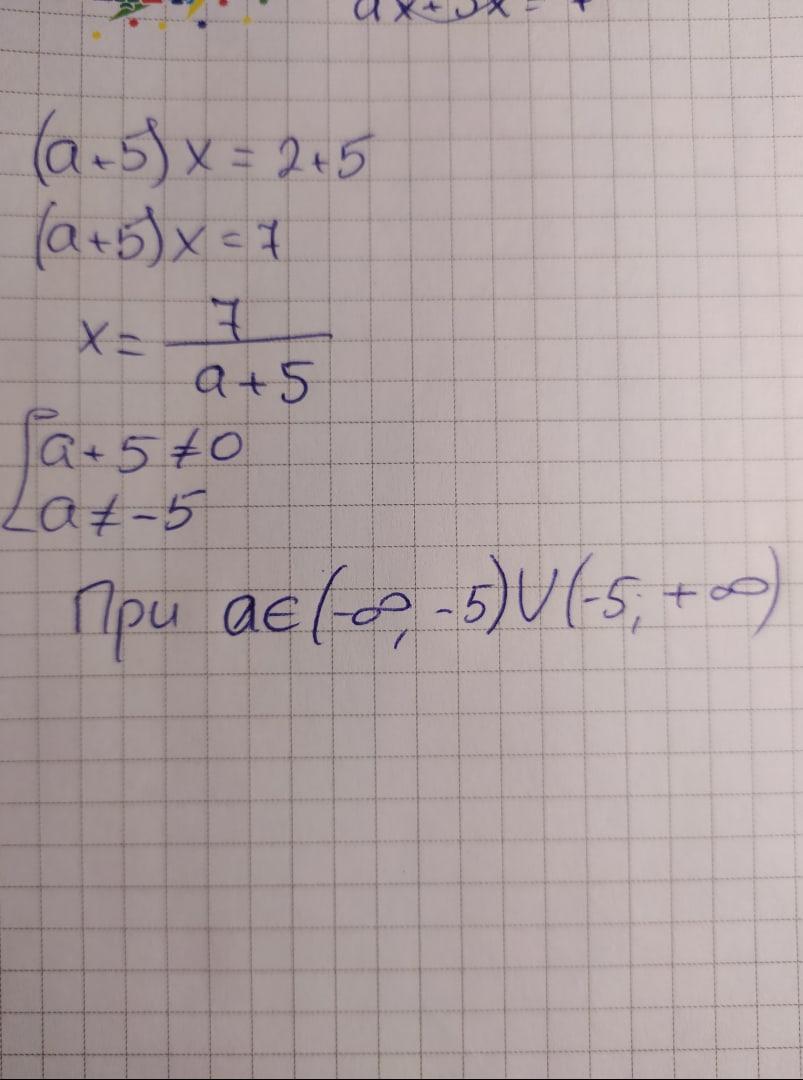 (a+5)x = 2+5
(a+5)x = 7
x = 7
a+5
a+5≠0
a≠-5
При a∈(-∞, -5)∪(-5; +∞)